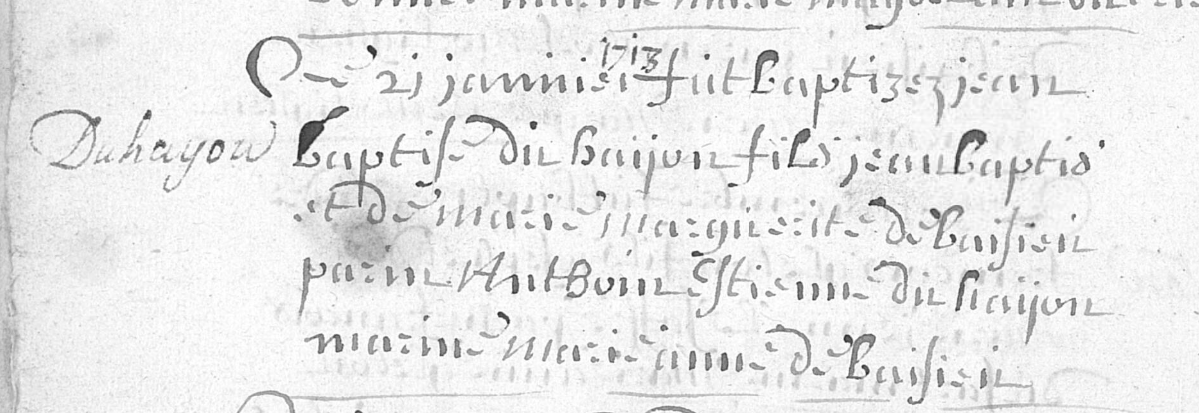 1713
Ce 21 jannier fut baptizez jean
Duhayon
baptise du haijon fils jean baptis
et de marie marguerite de baisieu
parin Anthoin Estienne du haijon
marine marie anne de baisieu